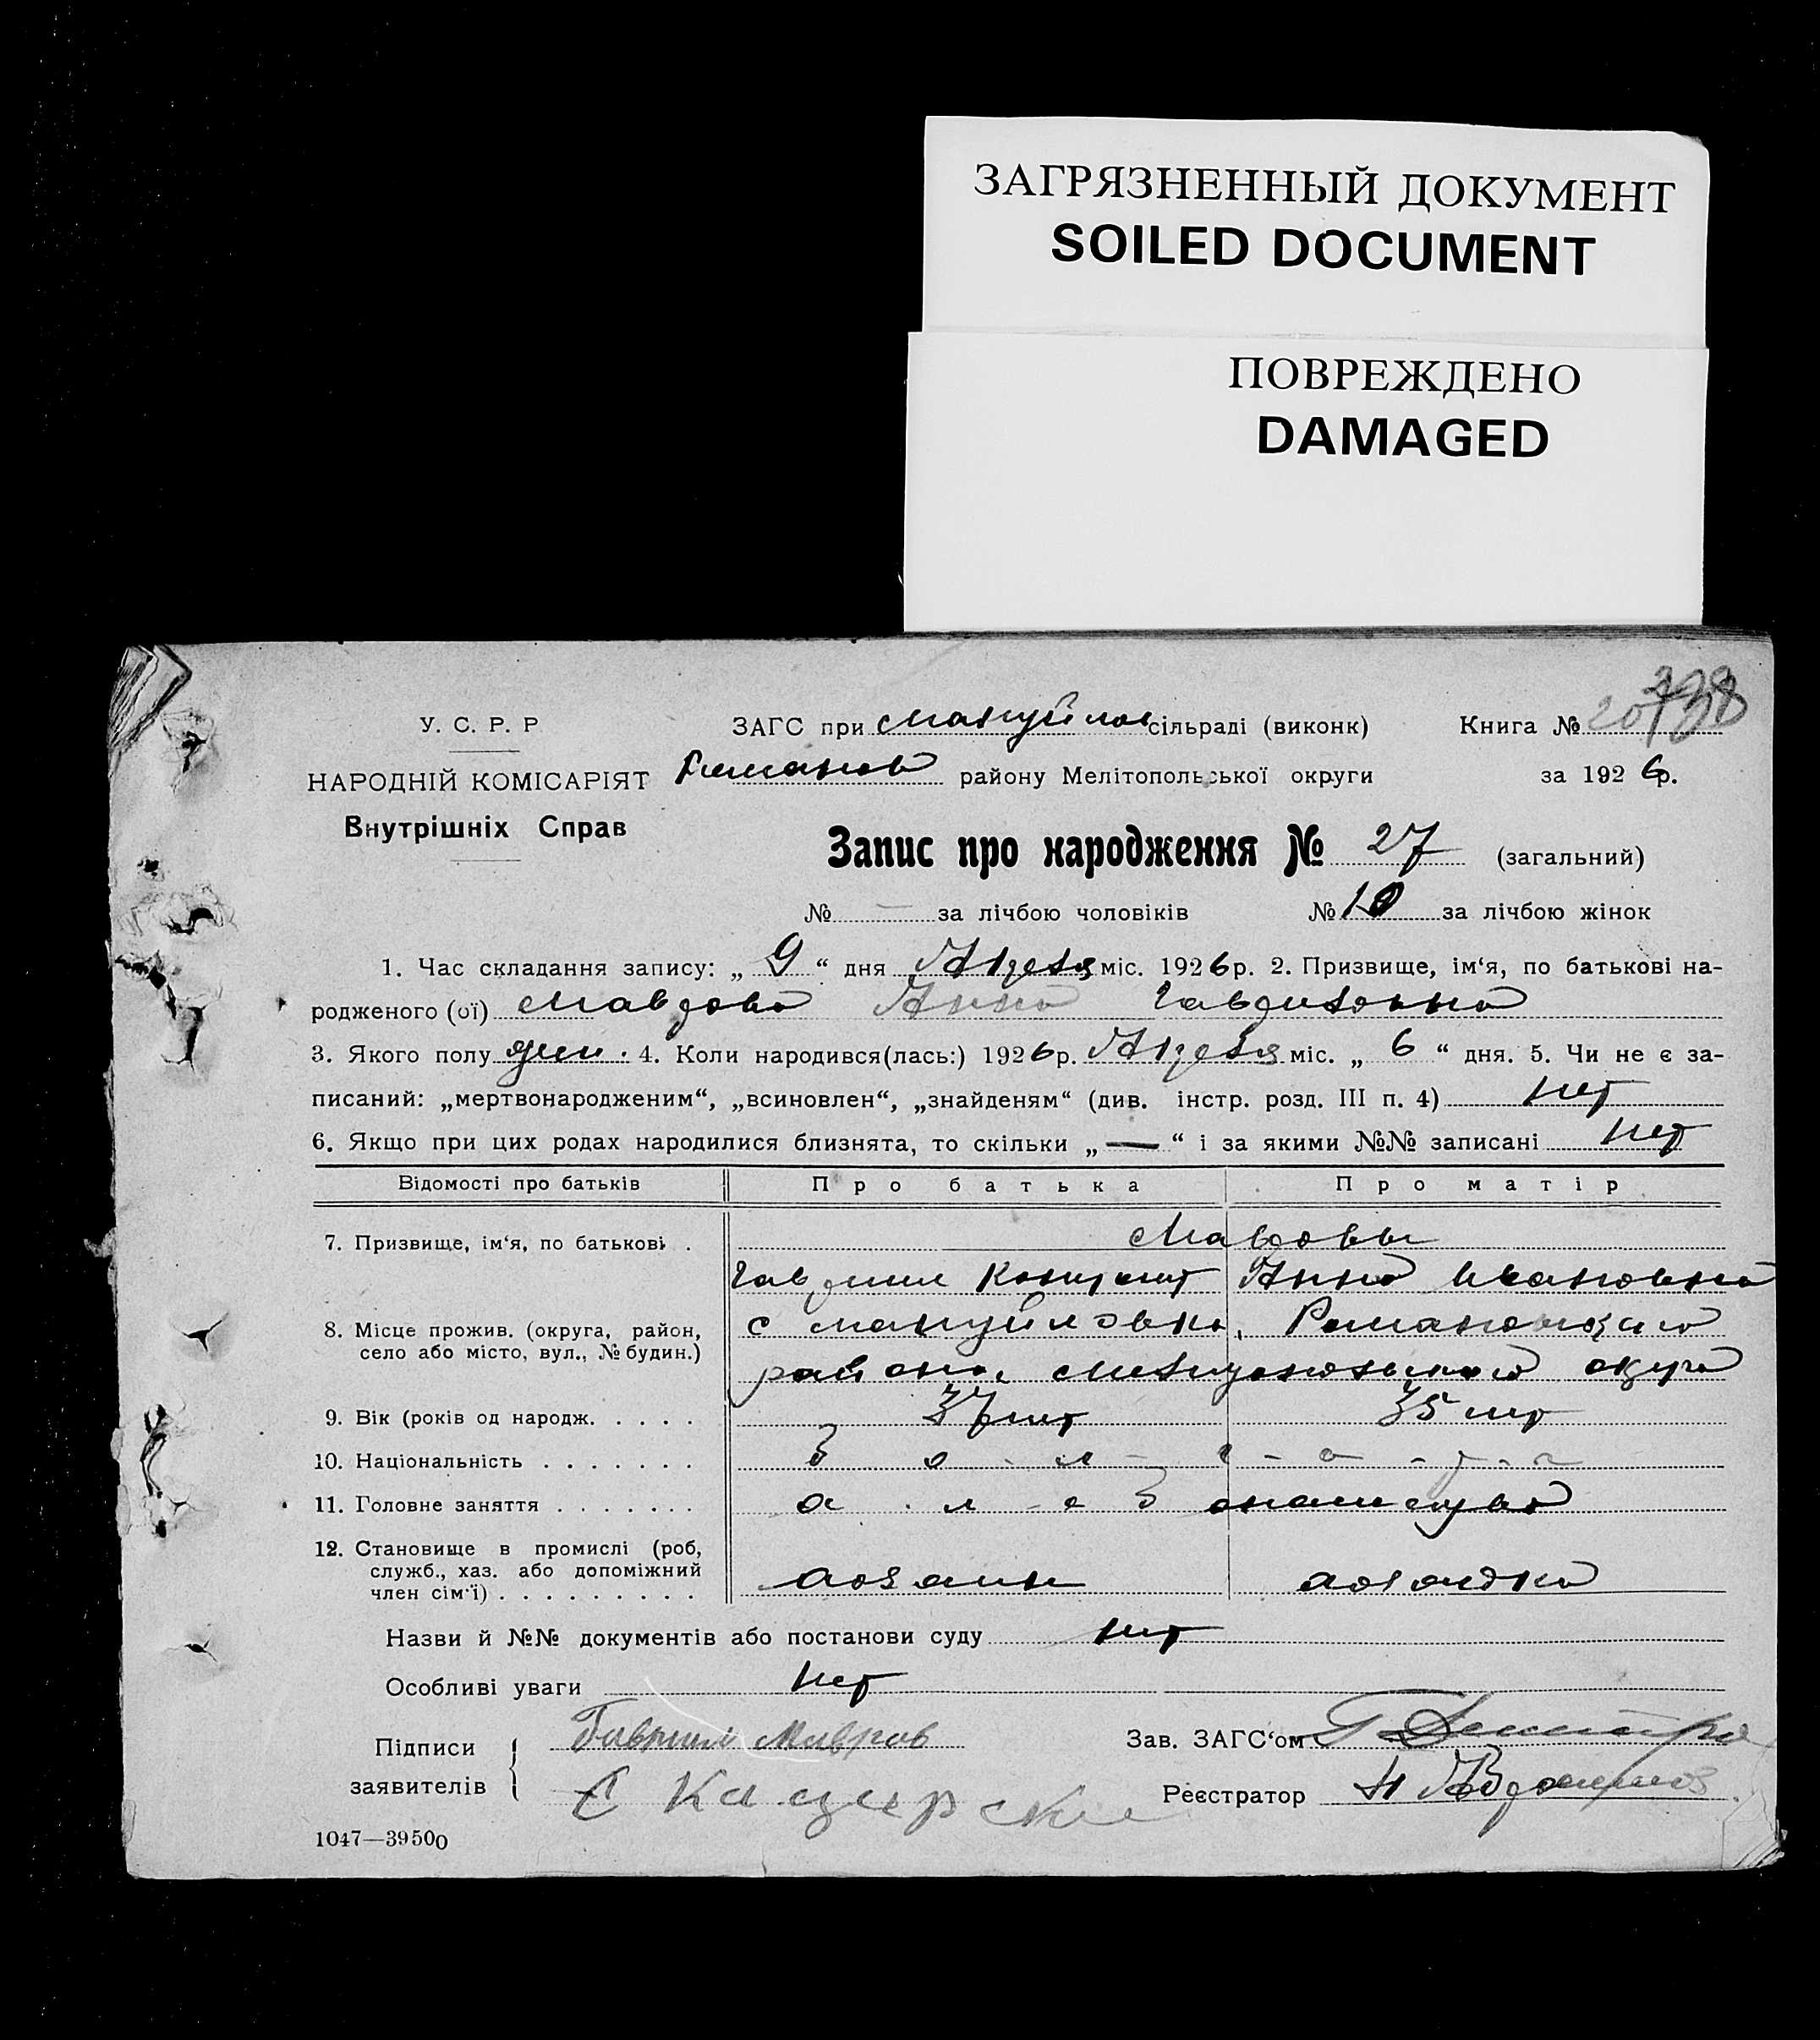 ЗАГРЯЗНЕННЫЙ ДОКУМЕНТ
SOILED DOCUMENT
ПОВРЕЖДЕНО
DAMAGED
У. С. Р. Р
НАРОДНІЙ КОМІСАРІЯТ
Внутрішніх Справ
ЗАГС при Мануйлов сільраді (виконк)
Романов району Мелітопольської округи
Книга №
за 1926 р.
Запис про народження № 27 (загальний)
№ — за лічбою чоловіків № 10 за лічбою жінок
1. Час складання запису: „ 9 “ дня Апреля міс. 1926 р. 2. Призвище, ім‘я, по батькові на-
родженого (ої) Маврова Анна Гавриловна
3. Якого полу жен. 4. Коли народився(лась:) 1926 р. Апреля міс. „ 6 “ дня. 5. Чи не є за-
писаний: „мертвонародженим“, „всиновлен“, „знайденям“ (див. інстр. розд. III п. 4) нет
6. Якщо при цих родах народилися близнята, то скільки „ — “ і за якими №№ записані нет
Відомості про батьків Про батька Про матір
7. Призвище, ім‘я, по батькові . Мавровы
Гавриил Кондрат Анна Ивановна
8. Місце прожив. (округа, район, село або місто, вул., № будин.) с Мануйловка, Романовского
района, Мелитопольского округа
9. Вік (років од народж. . . . . 37 лет 35 лет
10. Національність . . . . . . . б о л г а р е
11. Головне заняття . . . . . . . хлебопашество
12. Становище в промислі (роб, служб., хаз. або допоміжний член сім‘ї) . . . . . . . . . хозяин хозяйка
Назви й №№ документів або постанови суду нет
Особливі уваги нет
Підписи заявителів { Гавриил Мавров
Зав. ЗАГС‘ом
Реєстратор
1047—39500